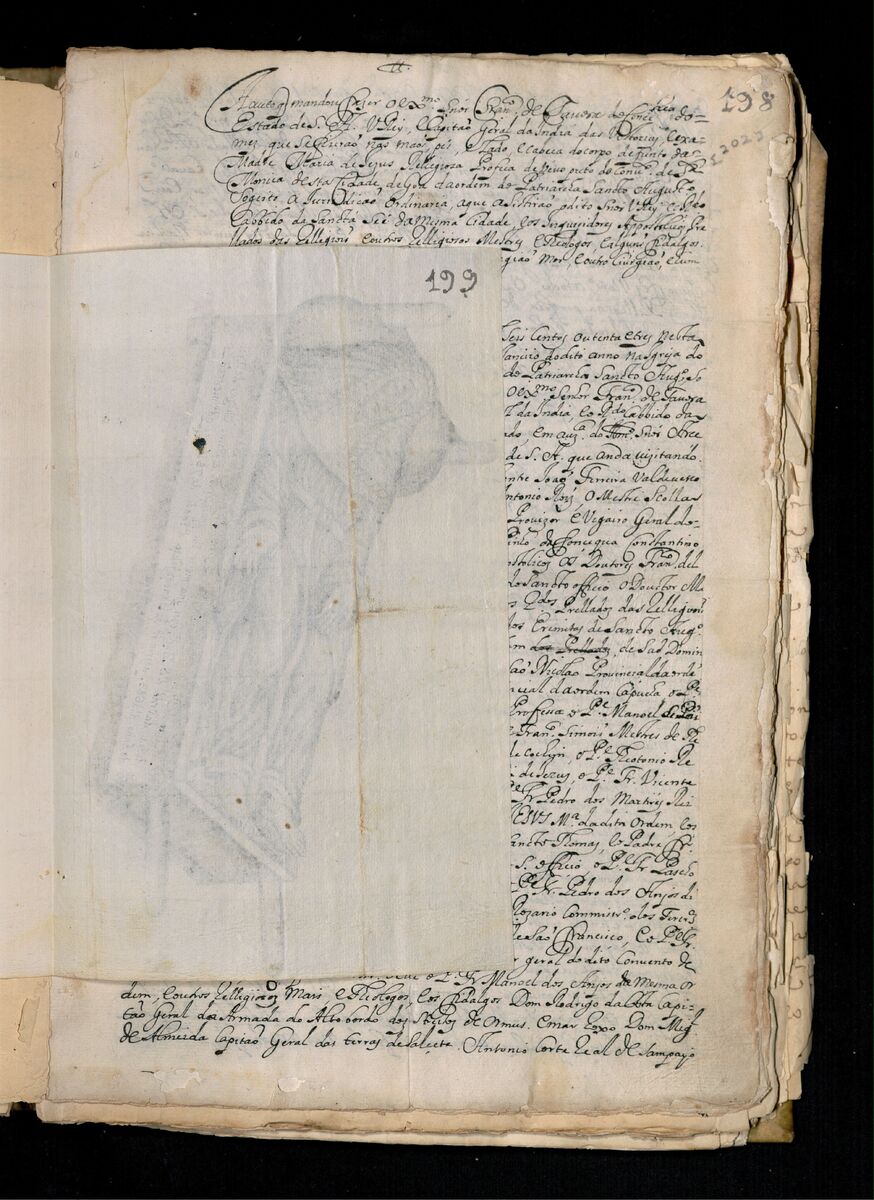 198
Autto q mandou fazer o ex.mo Snõr Fran.co de Tavora do Conc.o do
Estado de S. A. V Rey, e Capitão Geral da India das Vistorias, e exa-
mes, que se fizerão nas mãos, pés, e lado, e cabeça do corpo defunto da
Madre Maria de Jezus Relligioza Profeça de Veuo preto do Conv.to de S.ta
Monica desta Cidade de Goa da ordem do Patriarcha Sancto Augus.to
Sogeito a Jurisdicão Ordinaria, a que asistirão o dito Snor V Rey, e o R.do
Cabbido da Sancta Seé da mesma Cidade, e os Inquizidores Appostolicos, Pre
llados das Relligiois e outros Relligiosos Mestres, e Theologos, e alguns fidalgos.
gião Mor, e outro Cirurgião, e hum
199
seis Centos outenta e tres nesta
Janeiro do dito anno na Igreja do
do Patriarcha Sancto Aug.o
o ex.mo Senhor Fran.co de Tavora
l da India, e o R.do Cabbido da
ado, em auz.a do Snõr Arce
de S. A. que anda vizitando.
ente João Ferreira Valdevesso
Antonio Roiz o Mestre Scolla
Provizor e Vigairo Geral do
Constantino
ostolicos os Doutores Fran.co del
do Sancto officio o Douctor Ma
os R.dos Prellados das Relligiois
dos Eremitas de Sancto Aug.o
de São Domin
ão Nicolao Provincial da ordẽ
ncial da ordem Capucha o P.e
Professa o P.e Manoel
Fran.co Simois Mestres de The
de Cochim, o P.e Theotonio Re
de Jezus, o P.e Fr. Vicente
P.e Fr Pedro dos Martires Rei
JESVS M.a da dita ordem, e os
Sancto Thomas, e o Padre Fr.
S. officio o P.e Fr Pascho
P.e Fr. Pedro dos Anjos di
Rozario Commissr.o dos Terceir.os
de São Francisco, e o P.e Fr.
r geral do dito Convento de
o P.e Fr Manoel dos Anjos da mesma or
dem, e outros Relligiozos mais, e Theologos, e os fidalgos Dom Rodrigo da Costa Capi-
tão Geral da Armada do Alto bordo do Estreito de Ormus. e mar Roxo Dom Mig.l
de Almeida Capitão Geral das terras de Salcete. Antonio Corte Real de Sampayo